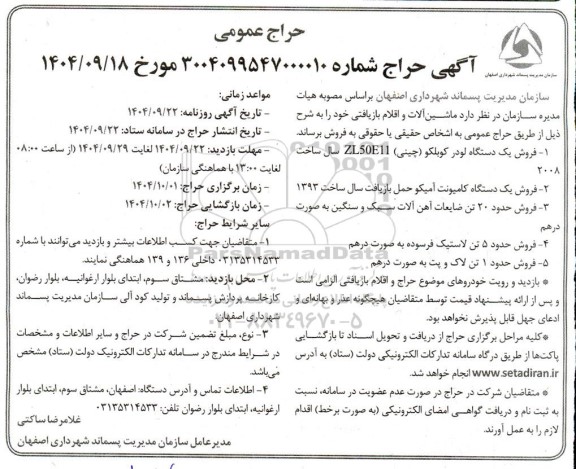 حراج عمومی
آگهی حراج شماره ۳۰۰۴۰۹۹۵۴۷۰۰۰۰۱۰ مورخ ۱۴۰۴/۰۹/۱۸
سازمان مدیریت پسماند شهرداری اصفهان
سازمان مدیریت پسماند شهرداری اصفهان براساس مصوبه هیات
مدیره سازمان در نظر دارد ماشین‌آلات و اقلام بازیافتی خود را به شرح
ذیل از طریق حراج عمومی به اشخاص حقیقی یا حقوقی به فروش برساند.
۱- فروش یک دستگاه لودر کوبلکو (چینی) ZL50E11 سال ساخت
۲۰۰۸
۲- فروش یک دستگاه کامیونت آمیکو حمل بازیافت سال ساخت ۱۳۹۳
۳- فروش حدود ۲۰ تن ضایعات آهن آلات سبک و سنگین به صورت
درهم
۴- فروش حدود ۵ تن لاستیک فرسوده به صورت درهم
۵- فروش حدود ۱ تن لاک و پت به صورت درهم
* بازدید و رویت خودروهای موضوع حراج و اقلام بازیافتی الزامی است
و پس از ارائه پیشنهاد قیمت توسط متقاضیان هیچگونه عذر و بهانه‌ای و
ادعای جهل قابل پذیرش نخواهد بود.
* کلیه مراحل برگزاری حراج از دریافت و تحویل اسناد تا بازگشایی
پاکت‌ها از طریق درگاه سامانه تدارکات الکترونیکی دولت (ستاد) به آدرس
www.setadiran.ir انجام خواهد شد.
* متقاضیان شرکت در حراج در صورت عدم عضویت در سامانه، نسبت
به ثبت نام و دریافت گواهی امضای الکترونیکی (به صورت برخط) اقدام
لازم را به عمل آورند.
مواعد زمانی:
- تاریخ آگهی روزنامه: ۱۴۰۴/۰۹/۲۲
- تاریخ انتشار حراج در سامانه ستاد: ۱۴۰۴/۰۹/۲۲
- مهلت بازدید: ۱۴۰۴/۰۹/۲۲ لغایت ۱۴۰۴/۰۹/۲۹ (از ساعت ۰۸:۰۰
لغایت ۱۳:۰۰ با هماهنگی سازمان)
- زمان برگزاری حراج: ۱۴۰۴/۱۰/۰۱
- زمان بازگشایی حراج: ۱۴۰۴/۱۰/۰۲
سایر شرایط حراج:
۱- متقاضیان جهت کسب اطلاعات بیشتر و بازدید می‌توانند با شماره
۰۳۱۳۵۳۱۴۵۳۳ داخلی ۱۳۶ و ۱۳۹ هماهنگی نمایند.
۲- محل بازدید: مشتاق سوم، ابتدای بلوار ارغوانیه، بلوار رضوان،
کارخانه پردازش پسماند و تولید کود آلی سازمان مدیریت پسماند
شهرداری اصفهان.
۳- نوع، مبلغ تضمین شرکت در حراج و سایر اطلاعات و مشخصات
در شرایط مندرج در سامانه تدارکات الکترونیک دولت (ستاد) مشخص
می‌باشد.
۴- اطلاعات تماس و آدرس دستگاه: اصفهان، مشتاق سوم، ابتدای بلوار
ارغوانیه، ابتدای بلوار رضوان تلفن: ۰۳۱۳۵۳۱۴۵۳۳
غلامرضا ساکتی
مدیرعامل سازمان مدیریت پسماند شهرداری اصفهان
ParsNamadData
۰۲۱-۸۸۳۴۹۶۷۰-۵